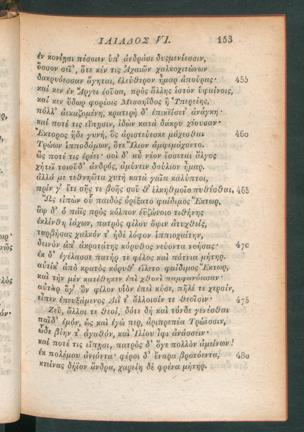 ΙΛΙΑΔΟΣ VI. 153
ἐν κονίῃσι πέσοιεν ὑπ' ἀνδράσι δυσμενέεσσιν,
ὅσσον σεῖ', ὅτε κέν τις Ἀχαιῶν χαλκοχιτώνων
δακρυόεσσαν ἄγηται, ἐλεύθερον ἦμαρ ἀπούρας· 455
καί κεν ἐν Ἄργει ἐοῦσα, πρὸς ἄλλης ἱστὸν ὑφαίνοις,
καί κεν ὕδωρ φορέοις Μεσσηΐδος ἢ Ὑπερείης,
πόλλ' ἀεκαζομένη, κρατερὴ δ' ἐπικείσετ' ἀνάγκη·
καί ποτέ τις εἴπῃσιν, ἰδὼν κατὰ δάκρυ χέουσαν·
Ἕκτορος ἥδε γυνή, ὃς ἀριστεύεσκε μάχεσθαι 460
Τρώων ἱπποδάμων, ὅτε Ἴλιον ἀμφιμάχοντο.
ὥς ποτέ τις ἐρέει· σοὶ δ' αὖ νέον ἔσσεται ἄλγος
χήτεϊ τοιοῦδ' ἀνδρός, ἀμύνειν δούλιον ἦμαρ.
ἀλλά με τεθνηῶτα χυτὴ κατὰ γαῖα καλύπτοι,
πρίν γ' ἔτι σῆς τε βοῆς σοῦ θ' ἑλκηθμοῖο πυθέσθαι. 465
Ὣς εἰπὼν οὗ παιδὸς ὀρέξατο φαίδιμος Ἕκτωρ,
ἂψ δ' ὁ πάϊς πρὸς κόλπον ἐϋζώνοιο τιθήνης
ἐκλίνθη ἰάχων, πατρὸς φίλου ὄψιν ἀτυχθείς,
ταρβήσας χαλκόν τε ἠδὲ λόφον ἱππιοχαίτην,
δεινὸν ἀπ' ἀκροτάτης κόρυθος νεύοντα νοήσας· 470
ἐκ δ' ἐγέλασσε πατήρ τε φίλος καὶ πότνια μήτηρ.
αὐτίκ' ἀπὸ κρατὸς κόρυθ' εἵλετο φαίδιμος Ἕκτωρ,
καὶ τὴν μὲν κατέθηκεν ἐπὶ χθονὶ παμφανόωσαν·
αὐτὰρ ὅγ' ὃν φίλον υἱὸν ἐπεὶ κύσε, πῆλέ τε χερσίν,
εἶπεν ἐπευξάμενος Διΐ τ' ἄλλοισίν τε θεοῖσιν· 475
Ζεῦ, ἄλλοι τε θεοί, δότε δὴ καὶ τόνδε γενέσθαι
παῖδ' ἐμόν, ὡς καὶ ἐγώ περ, ἀριπρεπέα Τρώεσσιν,
ὧδε βίην τ' ἀγαθόν, καὶ Ἰλίου ἶφι ἀνάσσειν·
καί ποτέ τις εἴπῃσι, πατρὸς δ' ὅγε πολλὸν ἀμείνων!
ἐκ πολέμου ἀνιόντα· φέροι δ' ἔναρα βροτόεντα, 480
κτείνας δήϊον ἄνδρα, χαρείη δὲ φρένα μήτηρ.